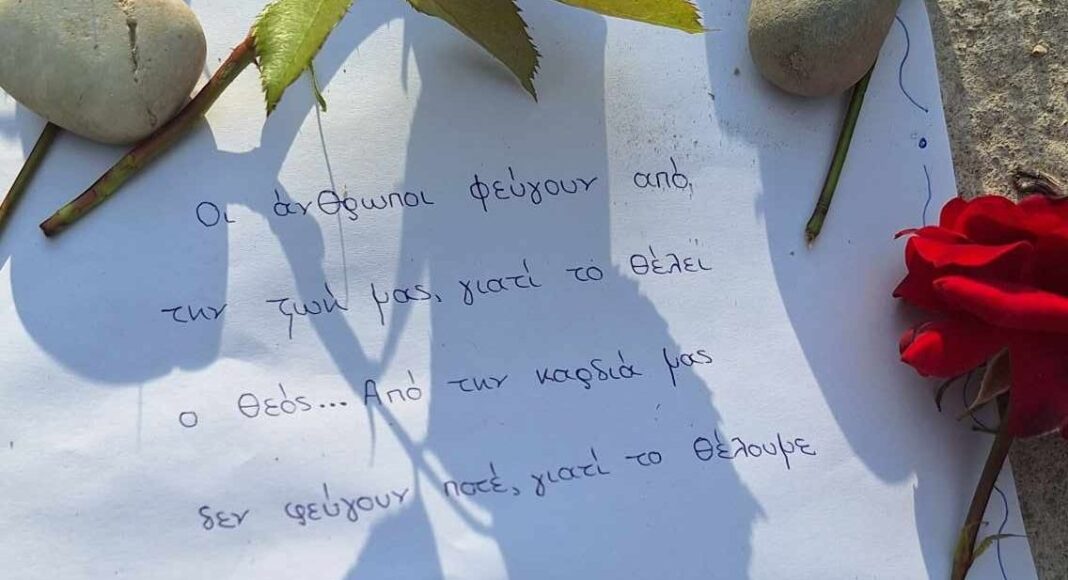 Οι άνθρωποι φεύγουν από,
την ζωή μας, γιατί το θέλεϊ
ο Θεός... Από την καρδιά μας
δεν φεύγουν ποτέ, γιατί το θέλουμε